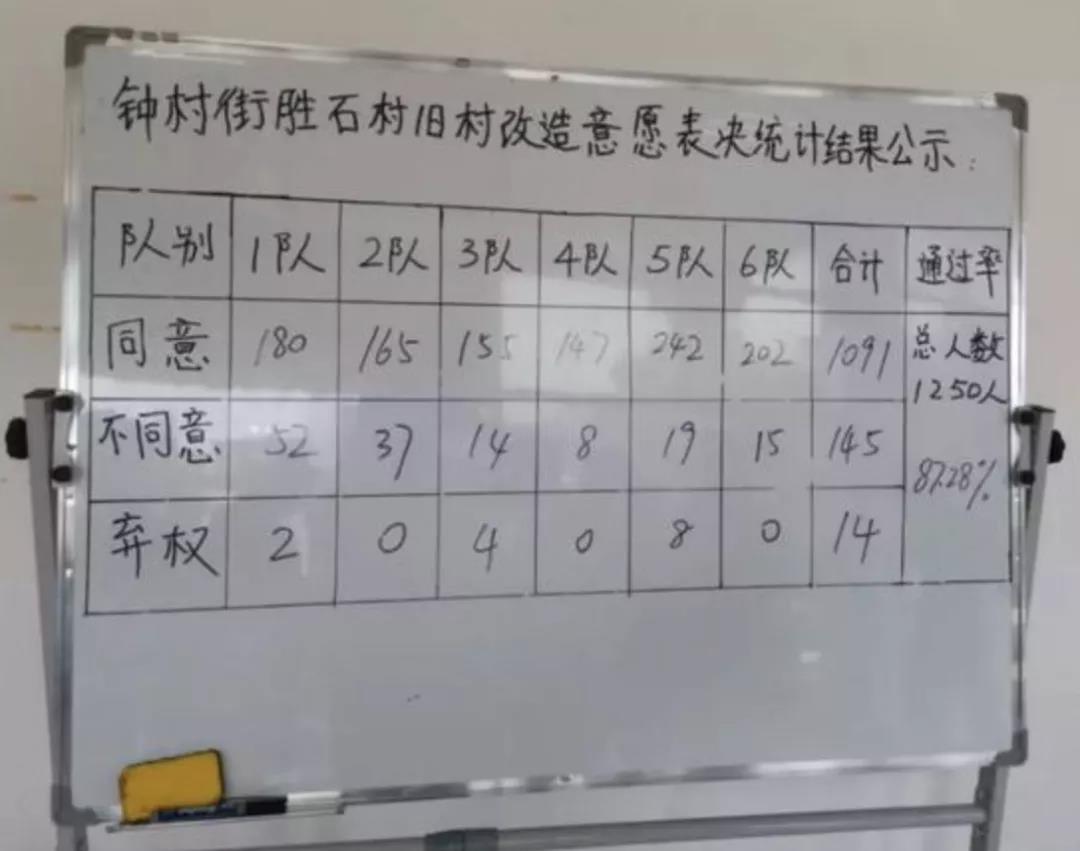 钟村街胜石村旧村改造意愿表决统计结果公示:
队别 1队 2队 3队 4队 5队 6队 合计 通过率
同意 180 165 155 147 242 202 1091 总人数
1250人
不同意 52 37 14 8 19 15 145
87.28%
弃权 2 0 4 0 8 0 14